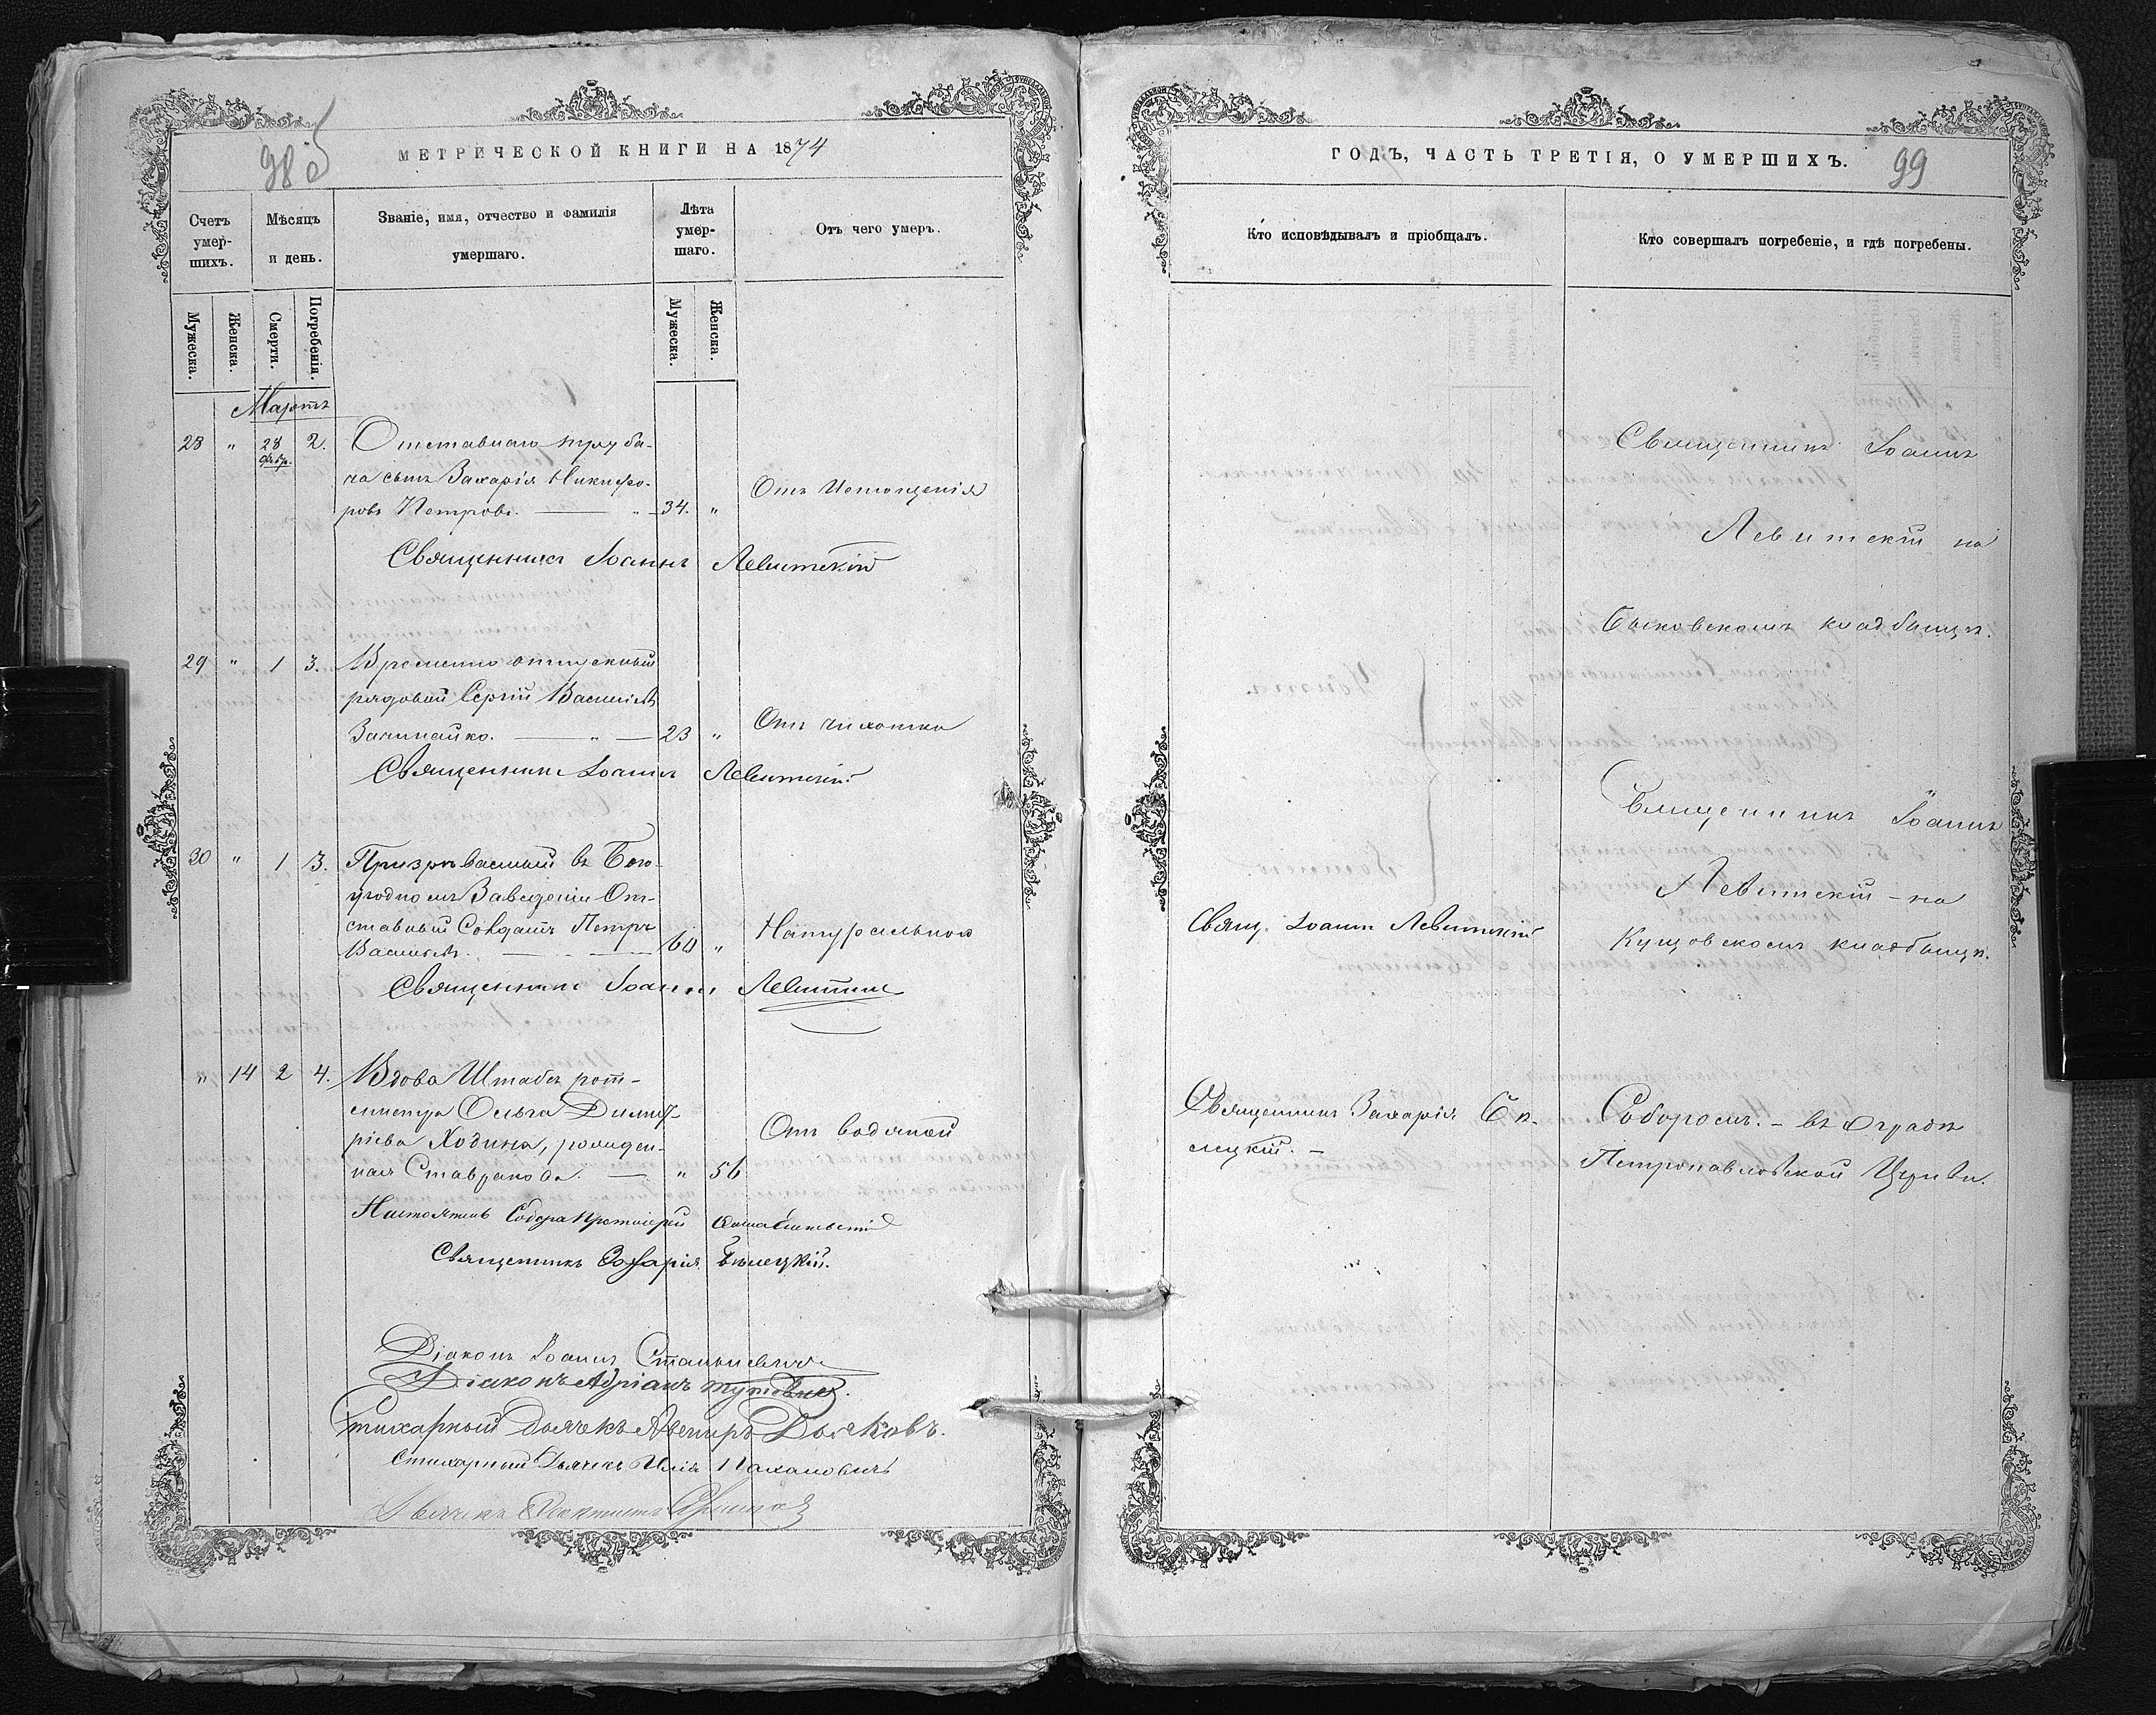 98 б
МЕТРИЧЕСКОЙ КНИГИ НА 1874
Счетъ умер-шихъ.
Мѣсяцъ и день.
Званіе, имя, отчество и фамилія умершаго.
Лѣта умер-шаго.
Отъ чего умеръ.
Мужеска.
Женска.
Смерти.
Погребенія.
Мужеска.
Женска.
Мартъ
28 " 28 февр. 2. Отставнаго труба-
ча сынъ Захарія Никифо-
ровъ Петровъ. — " — 34. " Отъ Истощенія
Священникъ Іоаннъ Левитскій
29 " 1 3. Временно отпускный
рядовой Сергій Василіевъ
— " — 23 " Отъ чахотки
Священникъ Іоаннъ Левитскій
30 " 1 3. Призрѣваемый въ Бого-
угодномъ Заведеніи От-
ставный Солдатъ Петръ
Василіевъ. — 60 " Натуральною
Священникъ Іоаннъ Левитскій
" 14 2 4. Вдова Штабсъ рот-
мистра Ольга Димит-
ріева Ходина, рожден-
ная Ставракова. — " 56 Отъ водяной
Настоятель Собора Протоіерей
Священникъ Захарія Бѣлецкій.
Діаконъ Іоаннъ Станкевичъ
Діаконъ Адріанъ
Стихарный Дьячекъ Авениръ Дьяковъ.
Стихарный Дьячекъ Илія
Дьячекъ
ГОДЪ, ЧАСТЬ ТРЕТІЯ, О УМЕРШИХЪ.
99
Кто исповѣдывалъ и пріобщалъ.
Кто совершалъ погребеніе, и гдѣ погребены.
Священникъ Іоаннъ
Левитскій на
Быковскомъ кладбищѣ.
Священникъ Іоаннъ
Левитскій – на
Свящ. Іоаннъ Левитскій
Кущовскомъ кладбищѣ.
Священникъ Захарія Бѣ-
лецкій. –
Соборомъ. – въ оградѣ
Петропавловской Церкви.